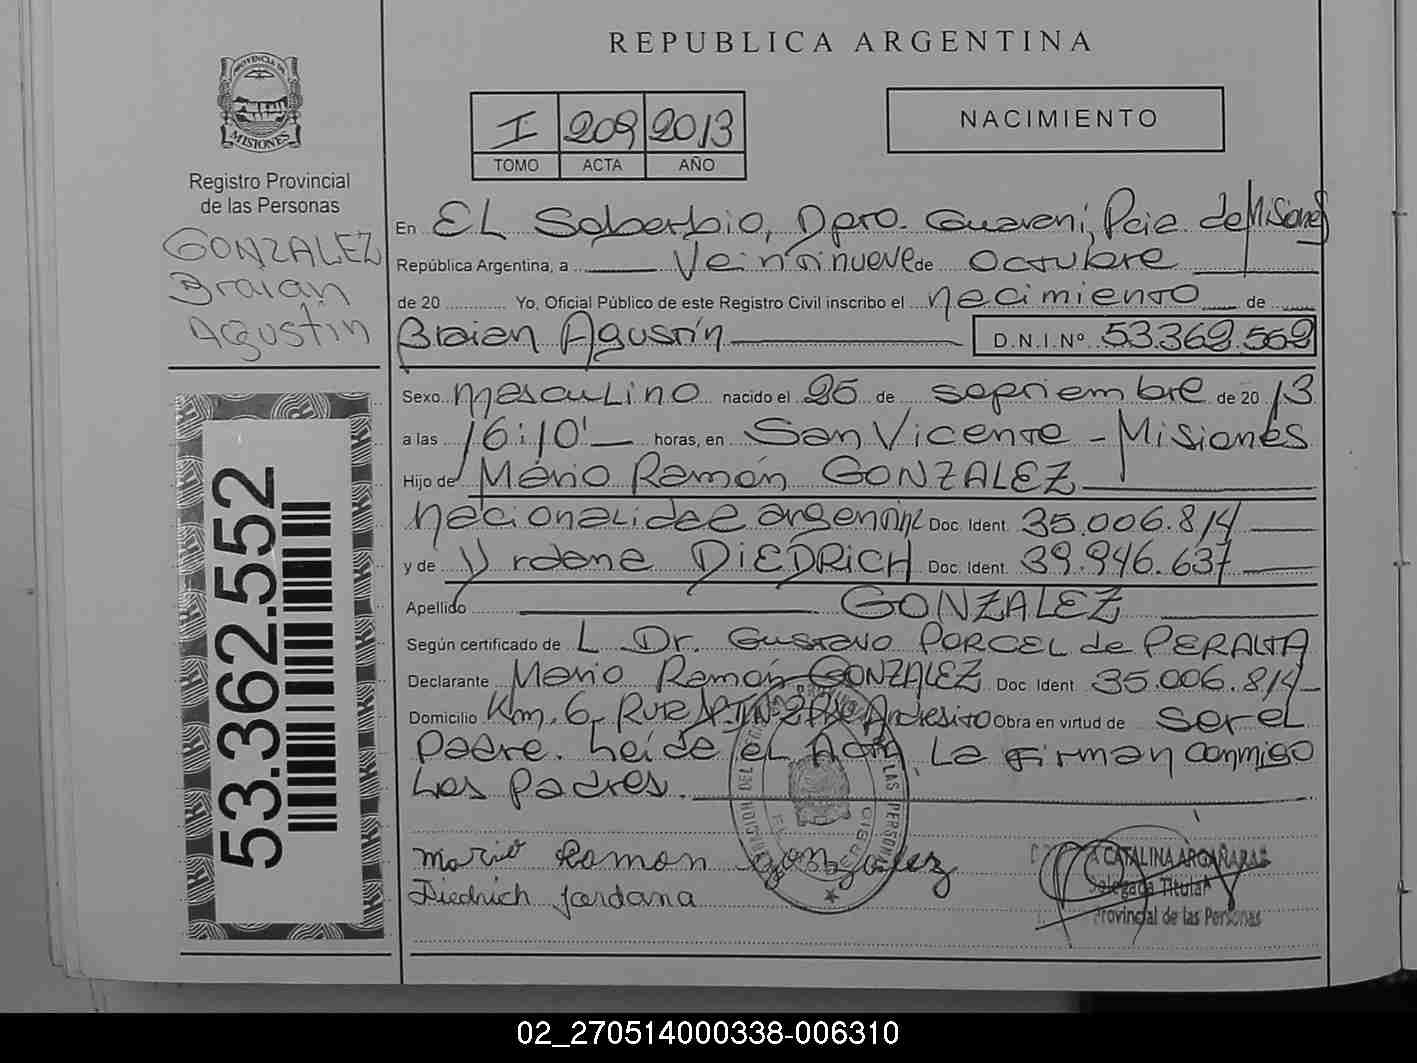 REPUBLICA ARGENTINA
PROVINCIA DE
MISIONES
Registro Provincial
de las Personas
GONZALEZ
Braian
Agustín
I 209 2013
TOMO ACTA AÑO
NACIMIENTO
En EL Soberbio, Dpto. Guaraní, Pcia de Misiones
República Argentina, a Veintinueve de Octubre
de 20 Yo, Oficial Público de este Registro Civil inscribo el nacimiento de
Braian Agustín D.N.I.Nº 53.362.552
Sexo masculino nacido el 25 de septiembre de 2013
a las 16:10' horas, en San Vicente - Misiones
Hijo de Mario Ramón GONZALEZ
nacionalidad argentina Doc. Ident. 35.006.814
y de Yrdana DIEDRICH Doc. Ident. 39.946.637
Apellido GONZALEZ
Según certificado de L Dr. Gustavo PORCEL de PERALTA
Declarante Mario Ramón GONZALEZ Doc Ident 35.006.814
Domicilio Km. 6, Andresito Obra en virtud de ser el
padre. Leída el Acta, La Firman conmigo
Los padres.
Mario Ramon Gonzalez
Diedrich Jordana
CATALINA ARGAÑARAS
Delegada Titular
Provincial de las Personas
LAS PERSONAS
53.362.552
02_270514000338-006310